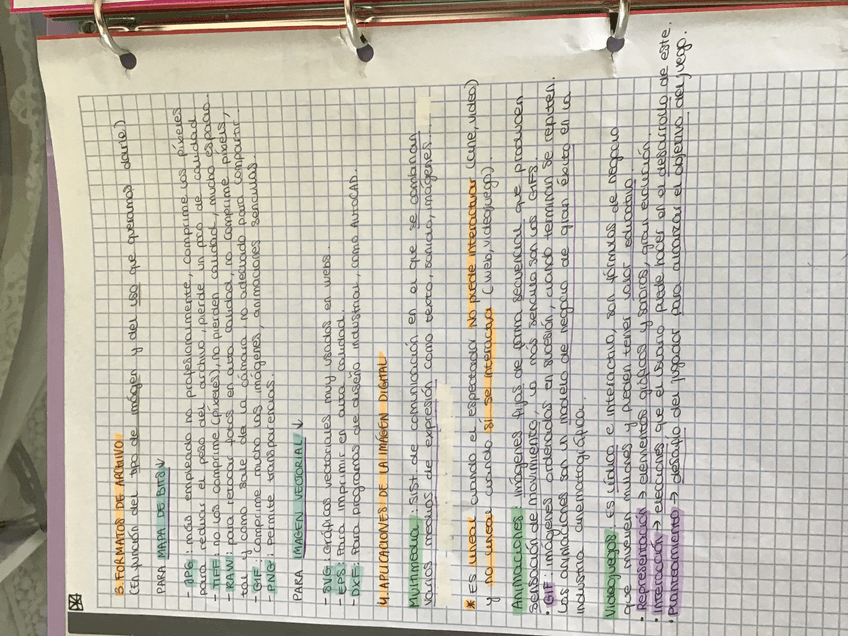 3. FORMATOS DE ARCHIVO
(En función del tipo de imágen y del uso que queramos darle)
PARA MAPA DE BITS ↓
- JPG: más empleado no profesionalmente, comprime los píxeles
para reducir el peso del archivo, pierde un poco de calidad
- TIFF: no los comprime (píxeles), no pierden calidad, mucho espacio.
- RAW: para retocar fotos en alta calidad, no comprime píxels,
tal y como sale de la cámara no adecuado para compartir
- GIF: Comprime mucho las imágenes, animaciones sencillas.
- PNG: Permite transparencias.
PARA IMAGEN VECTORIAL ↓
- SVG: Gráficas vectoriales muy usados en webs.
- EPS: Para imprimir en alta calidad.
- DXF: Para programas de diseño industrial, como AutoCAD.
4. APLICACIONES DE LA IMÁGEN DIGITAL
Multimedia: sist. de comunicación en el que se combinan
varios medios de expresión como texto, sonido, imágenes...
* Es lineal cuando el espectador no puede interactuar (cine, video)
y no lineal cuando si se interactua (web, videojuego).
Animaciones: imágenes fijas de forma secuencial que producen
sensación de movimiento, lo más sencillo son los GIFS.
• GIF: imágenes ordenadas en sucesión, cuando terminan se repiten.
Las animaciones son un modelo de negocio de gran éxito en la
industria cinematográfica.
Videojuegos: es lúdico e interactivo, son fórmulas de negocio
que mueven millones y pueden tener valor educativo.
• Representación → elementos gráficos y sonoros, gran evolución.
• Interacción → elecciones que el usuario puede hacer en el desarrollo de este.
• Planteamiento → desafío del jugador para alcanzar el objetivo del juego.